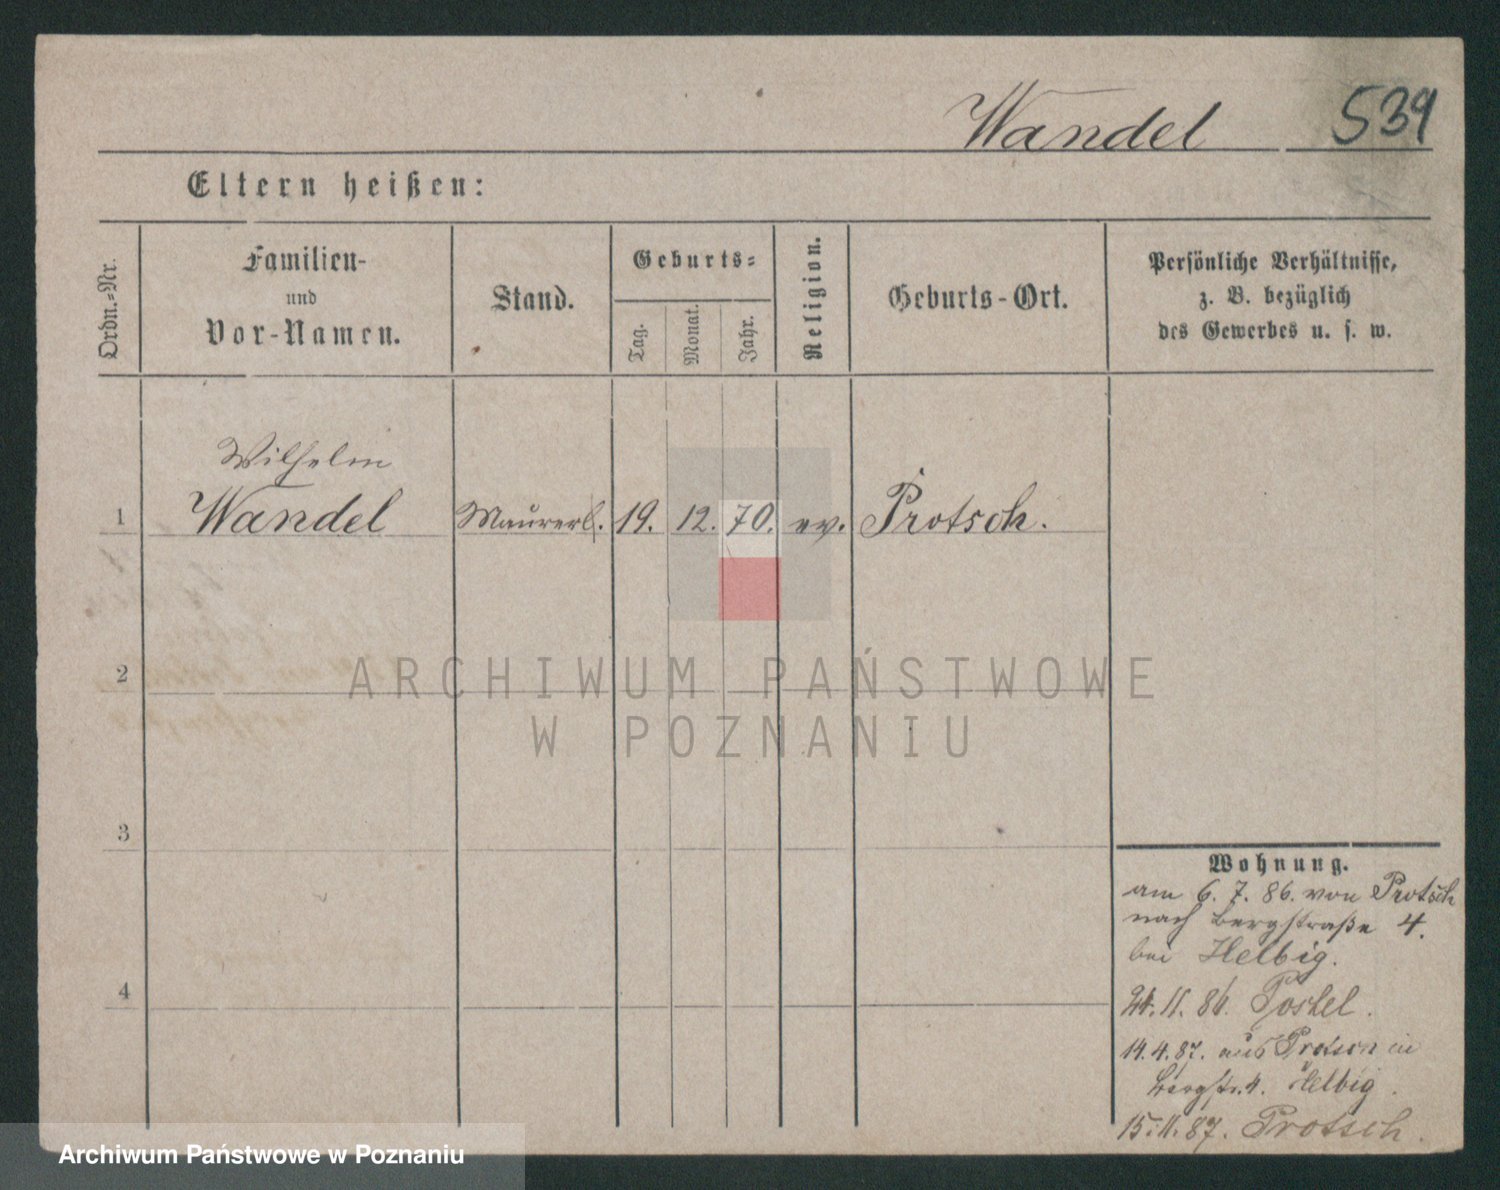 Wandel 539
Eltern heißen:
Ordn.-Nr.
Familien-
und
Vor-Namen.
Stand.
Geburts-
Tag.
Monat.
Jahr.
Religion.
Geburts-Ort.
Persönliche Verhältnisse,
z. B. bezüglich
des Gewerbes u. s. w.
Wilhelm
1 Wandel Maurerl. 19. 12. 70. ev. Protsch.
2
3
4
Wohnung.
am 6. 7. 86. von Protsch
nach Bergstraße 4.
bei Helbig.
11. 86.
14. 4. 87. aus Protsch in
Bergstr. 4. Helbig.
15. 11. 87. Protsch.
ARCHIWUM PAŃSTWOWE
W POZNANIU
Archiwum Państwowe w Poznaniu